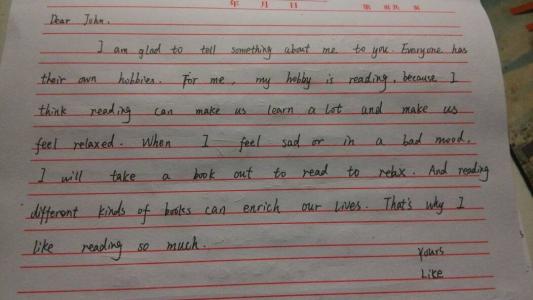 年 月 日
Dear John,
I am glad to tell something about me to you. Everyone has
their own hobbies. For me, my hobby is reading, because I
think reading can make us learn a lot and make us
feel relaxed. When I feel sad or in a bad mood,
I will take a book out to read to relax. And reading
different kinds of books can enrich our lives. That's why I
like reading so much.
Yours
Like